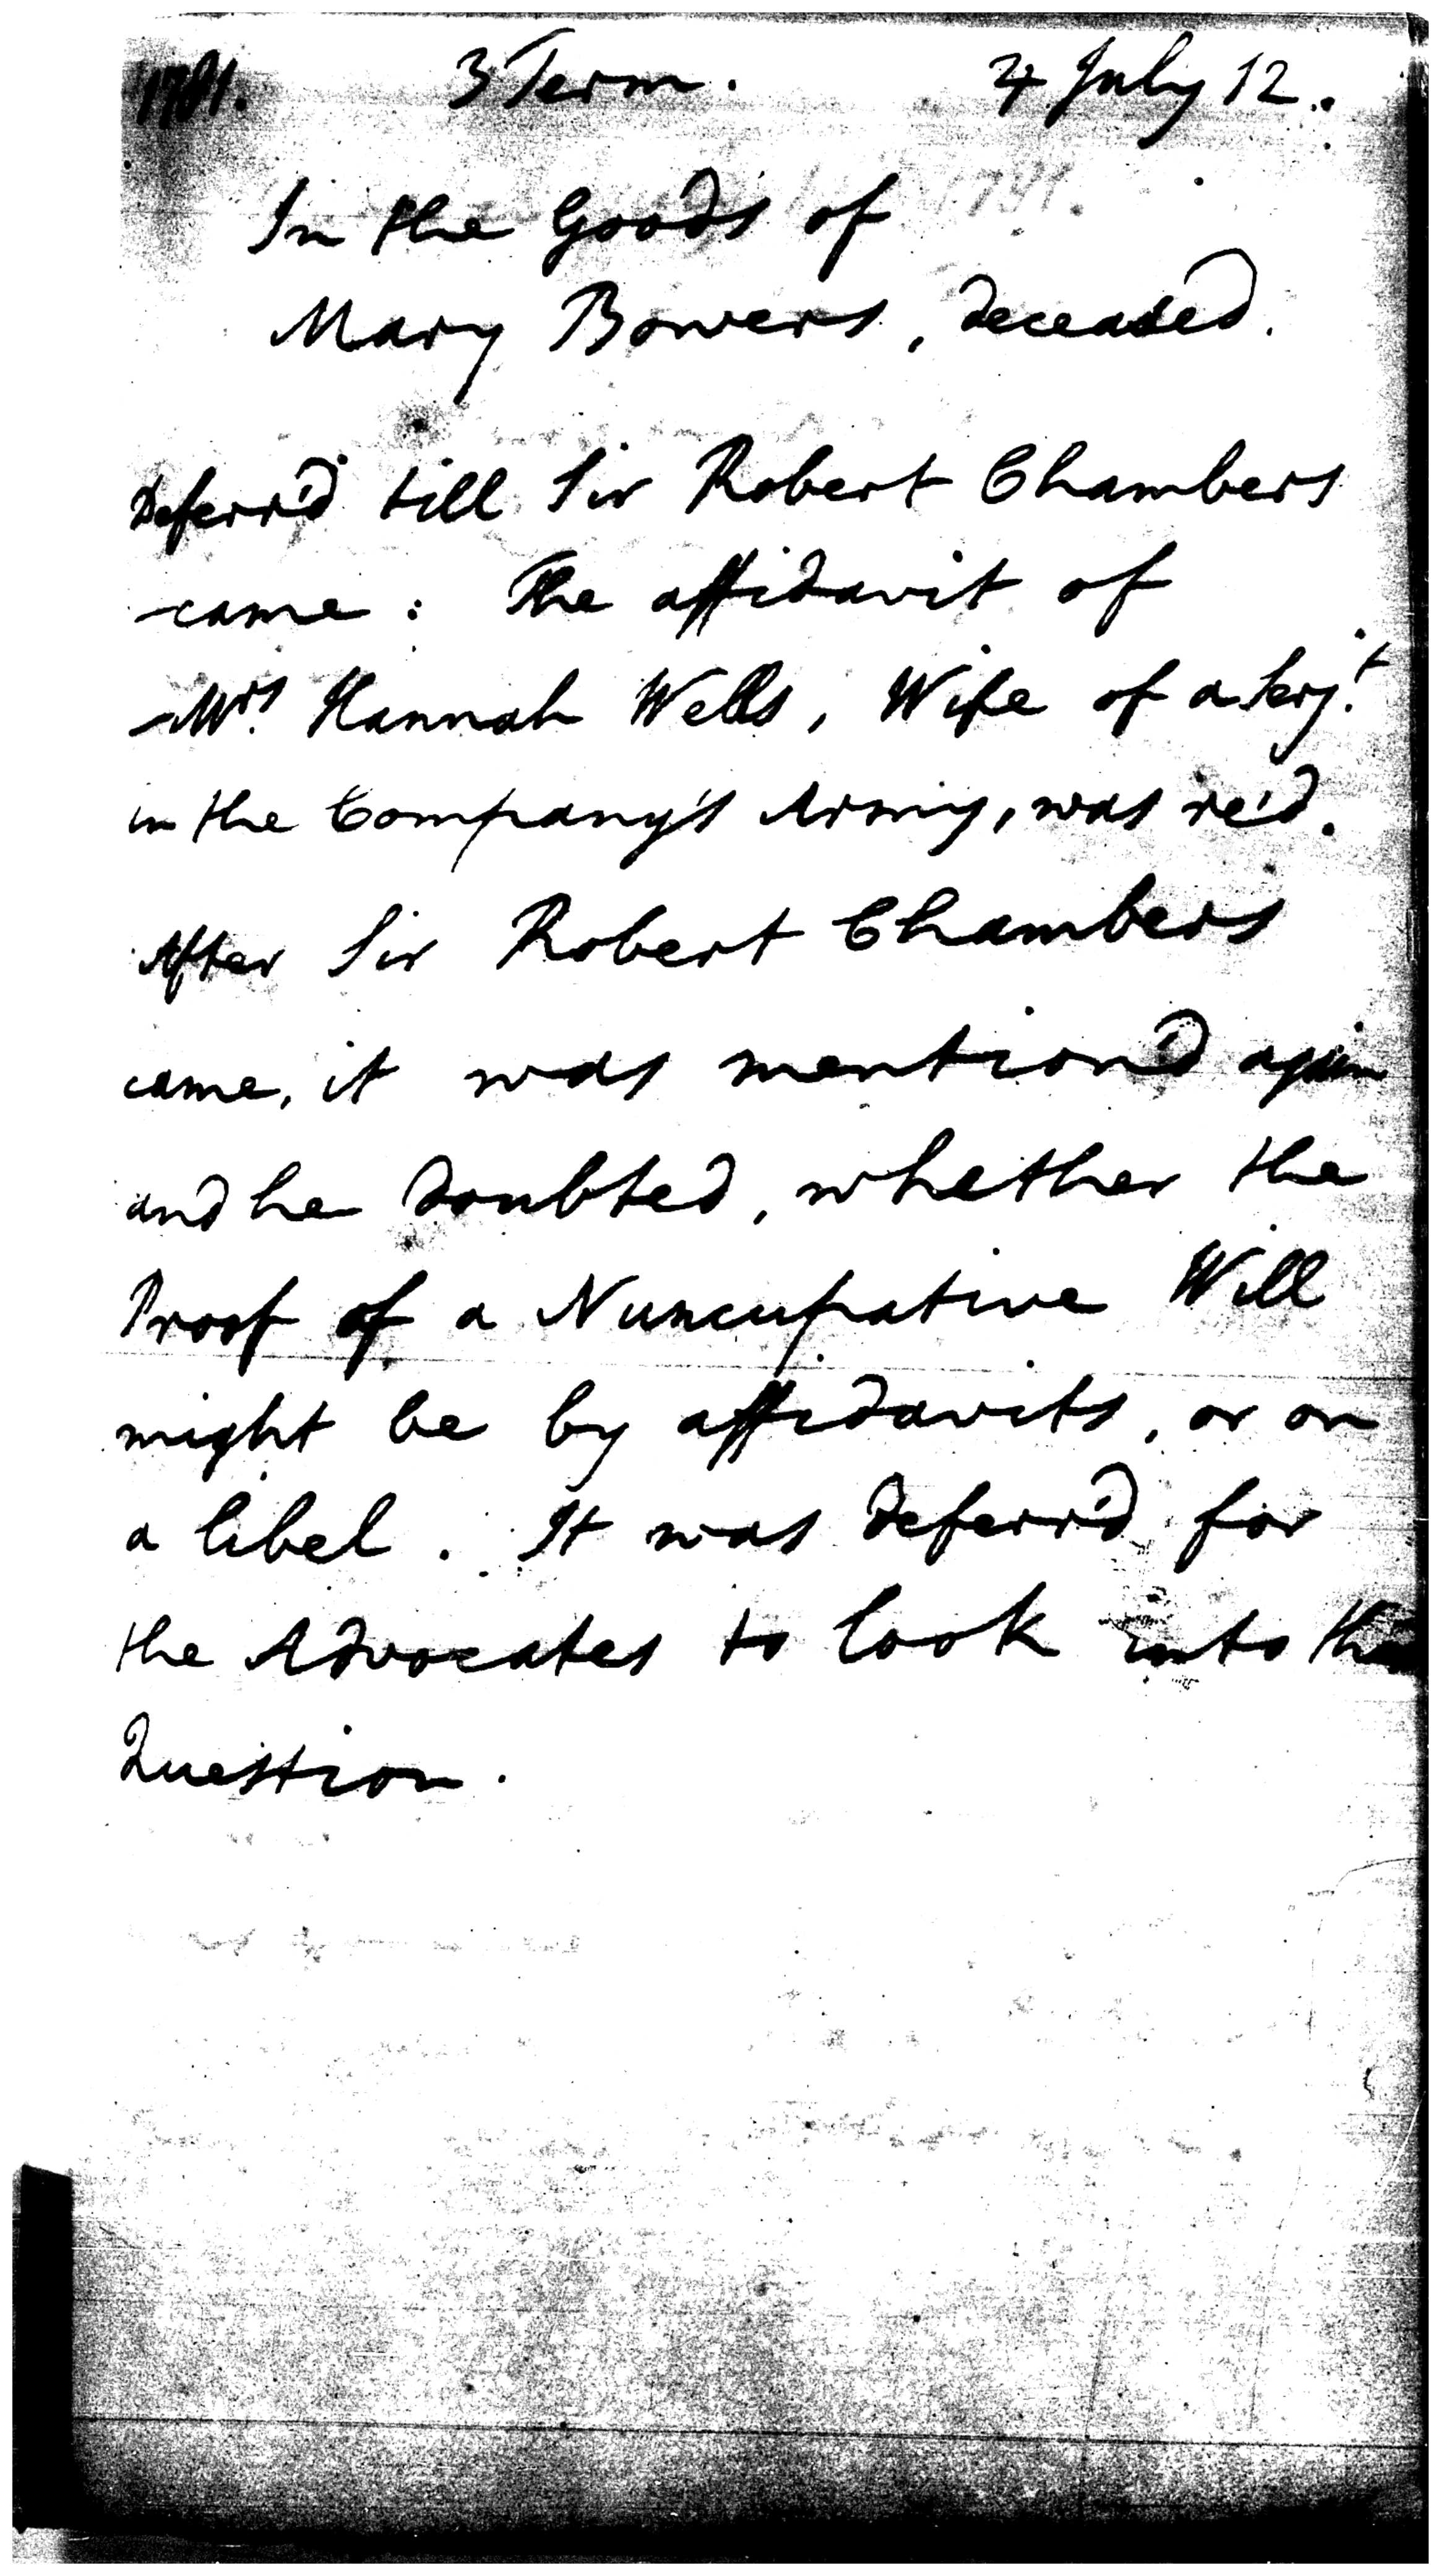 1781. 3 Term. 4 July 12.
In the Goods of
Mary Bowers, deceased.
Deferr'd till Sir Robert Chambers
came: The affidavit of
Mrs. Hannah Wells, Wife of a Serj.t
in the Company's Army, was re'd.
After Sir Robert Chambers
came, it was mention'd again
and he doubted, whether the
Proof of a Nuncupative Will
might be by affidavits, or on
a libel. It was deferr'd for
the Advocates to look into
Question.